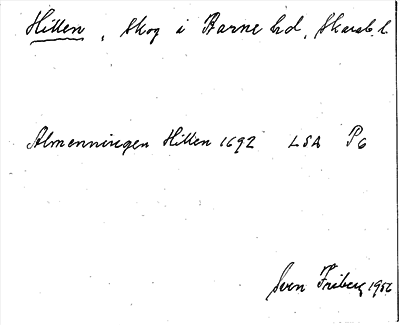 Hitten, Skog i Barne hd, Skarab. l.
Almenningen Hitten 1692 LSA P6
Sven Friberg 1956